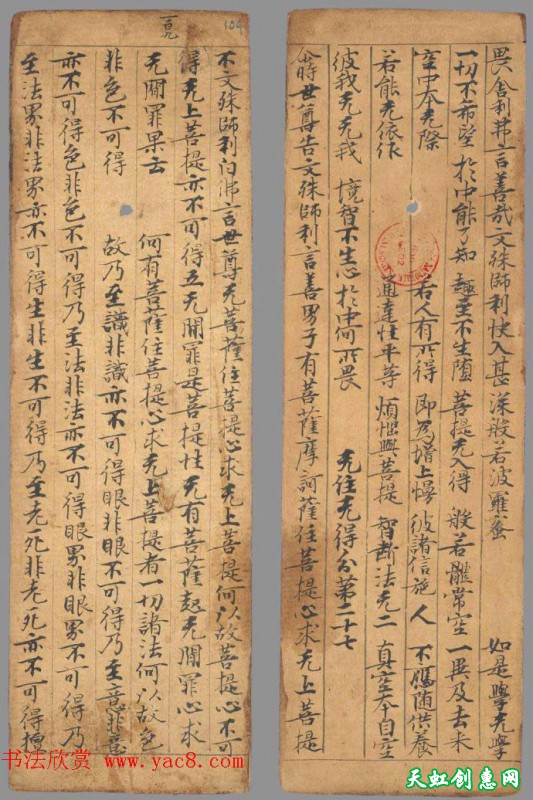 畏舍利弗言善哉文殊師利快入甚深般若波羅蜜 如是學无學
一切不希望 於中能了知 趣至不生墮 菩提无入得 般若體常空 一異及去來
空中本无際 若人有所得 即為增上慢 彼諸信施人 不應隨供養
若能无依住 通達性平等 煩惱與菩提 智斷法无二 真空本自空
彼我无无我 境智不生心 於中何所畏 无住无得分第二十七
世尊告文殊師利言善男子有菩薩摩訶薩住菩提心求无上菩提
104
不文殊師利白佛言世尊无菩薩住菩提心求无上菩提何以故菩提心不可
得无上菩提亦不可得五无間罪是菩提性无有菩薩起无間罪心求
无間罪果云 何有菩薩住菩提心求无上菩提者一切諸法何以故色
非色不可得 故乃至識非識亦不可得眼非眼不可得乃至意非意
亦不可得色非色不可得乃至法非法亦不可得眼界非眼界不可得乃
至法界非法界亦不可得生非生不可得乃至老死非老死亦不可得檀
书法欣赏 www.yac8.com
天虹创意网